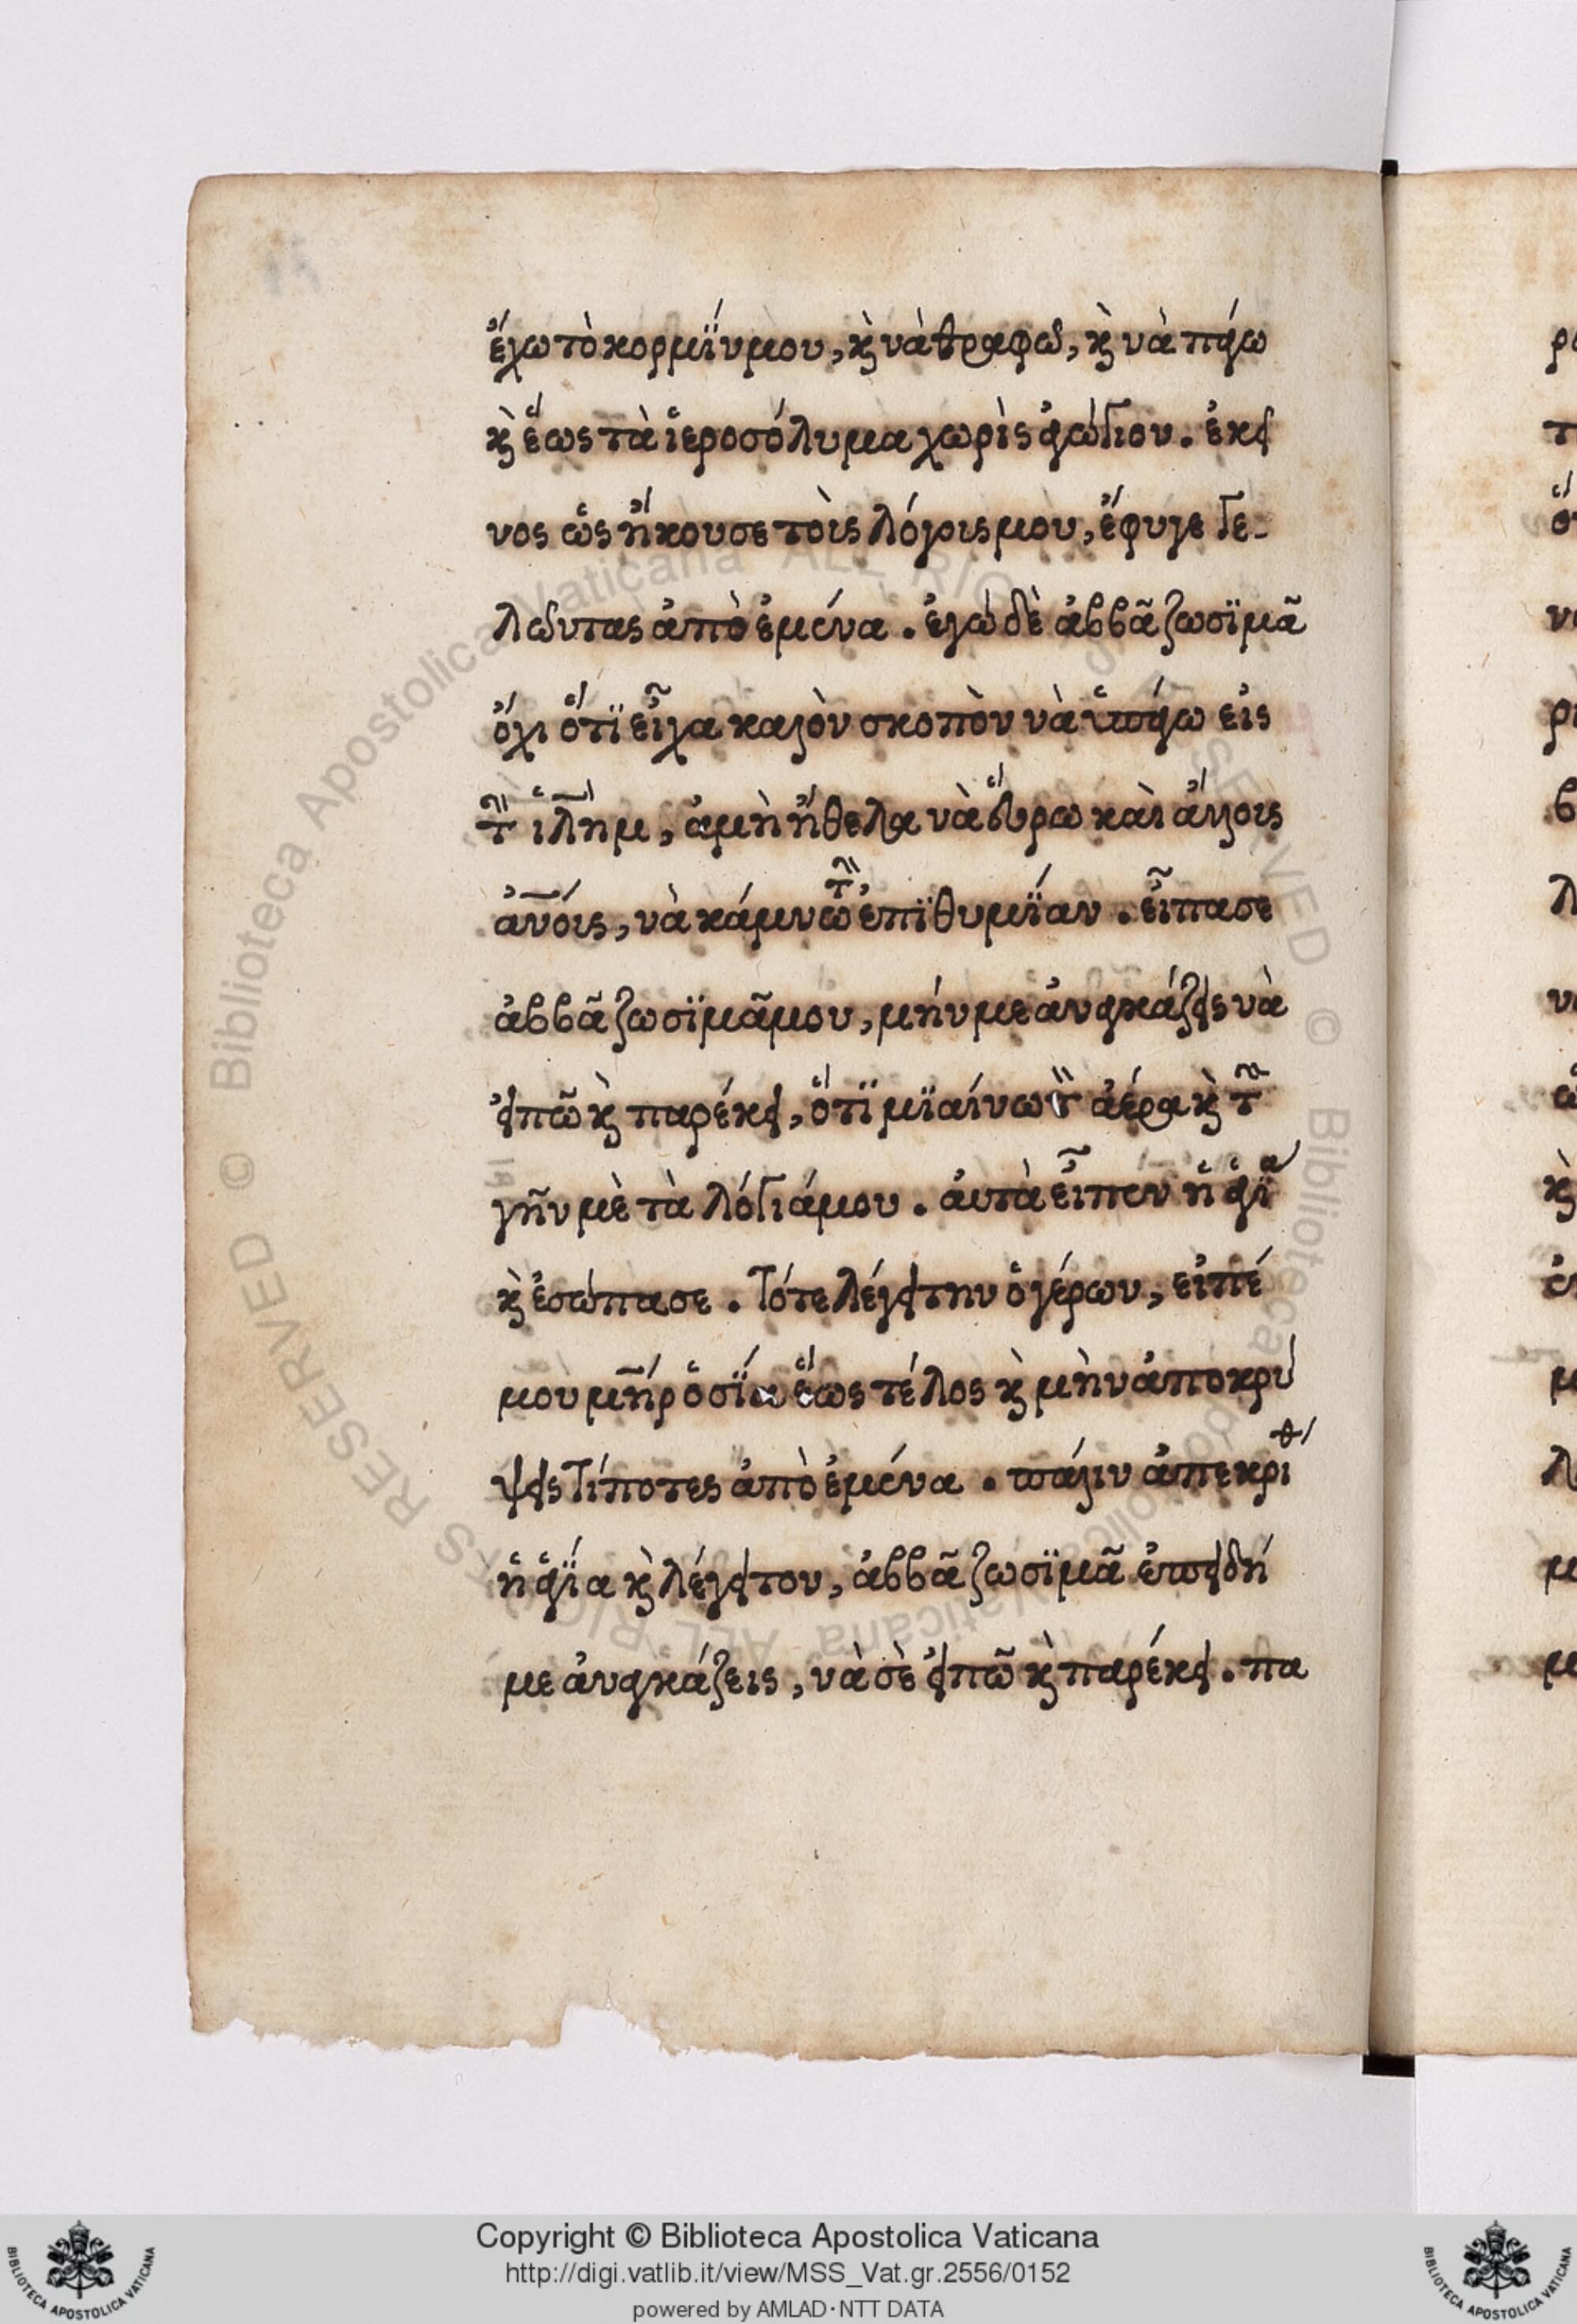 ἔχω τὸ κορμΐν μου, κ̀ νὰ θραφῶ, κ̀ νὰ πάγω
κ̀ ἕως τὰ ἱεροσόλυμα χωρὶς ἀγώγιον. ἐκεῖ
νος ὡς ἤκουσε τοὶς λόγοις μου, ἔφυγε γε-
λῶντας ἀπὸ ἐμένα. ἐγὼ δὲ ἀββᾶ ζωσϊμᾶ
ὄχι ὅτϊ εἶχα καλὸν σκοπὸν νὰ ὑπάγω εἰς
τ̀ ἱλ̅ημ, ἀμὴ ἤθελα νὰ εὕρω καὶ ἄλλοις
ἀν̅οίς, νὰ κάμνω τ̀ ἐπϊθυμΐαν. εἶπασε
ἀββᾶ ζωσϊμᾶ μου, μήν με ἀναγκάζεις νὰ
εἰπῶ κ̀ παρέκει, ὅτϊ μϊαίνω τ̀ ἀέρα κ̀ τ̀
γῆν μὲ τὰ λόγιά μου. ἀυτὰ εἶπεν ἡ ἁγΐα
κ̀ ἐσώπασε. Τότε λέγει την ὁ γέρων, εἰπέ
μου μη̅ρ ὁσΐα ἕως τέλος κ̀ μὴν ἀποκρύ
ψεις Τίποτες ἀπὸ ἐμένα. πάλιν ἀπεκρίθ
ἡ ἁγΐα κ̀ λέγει του, ἀββᾶ ζωσϊμᾶ ἐπειδή
με ἀναγκάζεις, νὰ σὲ εἰπῶ κ̀ παρέκει. πα
Copyright © Biblioteca Apostolica Vaticana
http://digi.vatlib.it/view/MSS_Vat.gr.2556/0152
powered by AMLAD·NTT DATA